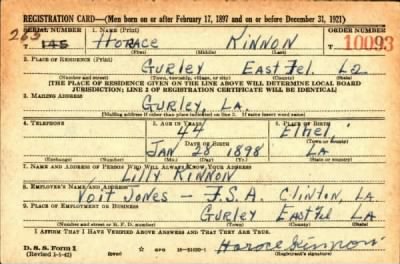 REGISTRATION CARD—(Men born on or after February 17, 1897 and on or before December 31, 1921)
SERIAL NUMBER 1. NAME (Print) ORDER NUMBER
263
T 145 HORACE KINNON T 10093
(First) (Middle) (Last)
2. PLACE OF RESIDENCE (Print)
GURLEY EAST Fel LA
(Number and street) (Town, township, village, or city) (County) (State)
[THE PLACE OF RESIDENCE GIVEN ON THE LINE ABOVE WILL DETERMINE LOCAL BOARD
JURISDICTION; LINE 2 OF REGISTRATION CERTIFICATE WILL BE IDENTICAL]
3. MAILING ADDRESS
GURLEY, LA.
(Mailing address if other than place indicated on line 2. If same insert word same)
4. TELEPHONE 5. AGE IN YEARS 6. PLACE OF BIRTH
44 Ethel,
DATE OF BIRTH (Town or county)
JAN 28 1898 LA
(Exchange) (Number) (Mo.) (Day) (Yr.) (State or country)
7. NAME AND ADDRESS OF PERSON WHO WILL ALWAYS KNOW YOUR ADDRESS
LILLY KINNON
8. EMPLOYER'S NAME AND ADDRESS
VOIT JONES — F.S.A. CLINTON, LA
9. PLACE OF EMPLOYMENT OR BUSINESS
GURLEY EAST Fel LA
(Number and street or R. F. D. number) (Town) (County) (State)
I AFFIRM THAT I HAVE VERIFIED ABOVE ANSWERS AND THAT THEY ARE TRUE.
D. S. S. Form 1 GPO Horace Kinnon
(Revised 3-1-42) (over) (Registrant's signature)